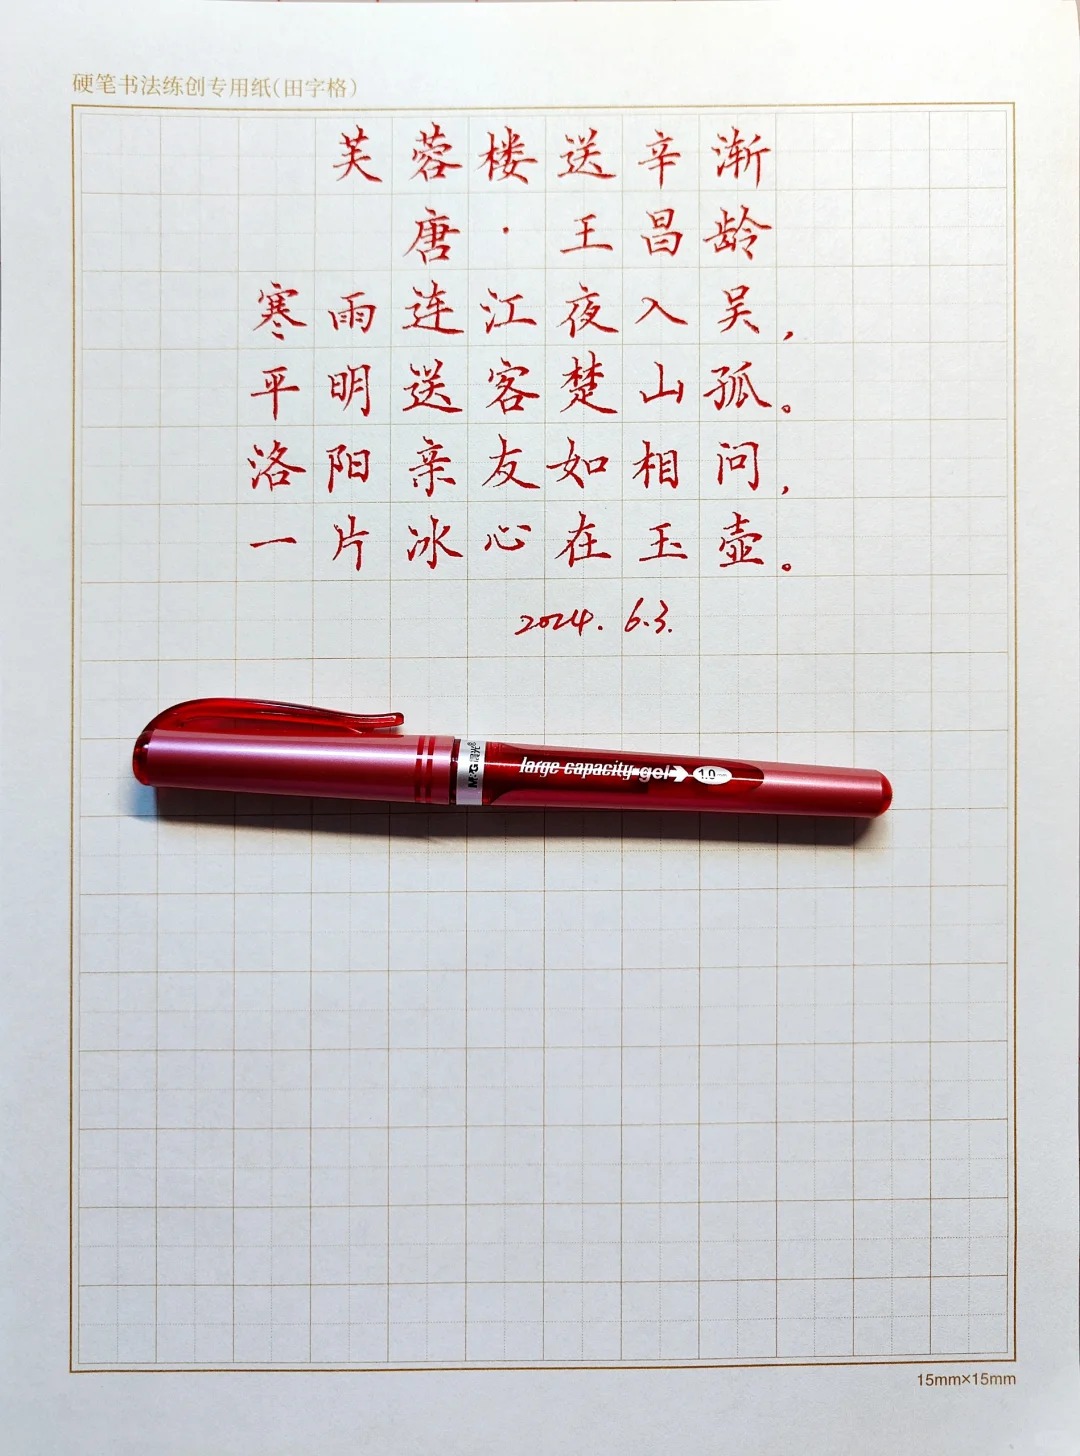 硬笔书法练创专用纸(田字格)
芙蓉楼送辛渐
唐·王昌龄
寒雨连江夜入吴，
平明送客楚山孤。
洛阳亲友如相问，
一片冰心在玉壶。
2024.6.3.
M&G晨光®
large capacity gel 1.0
15mm×15mm